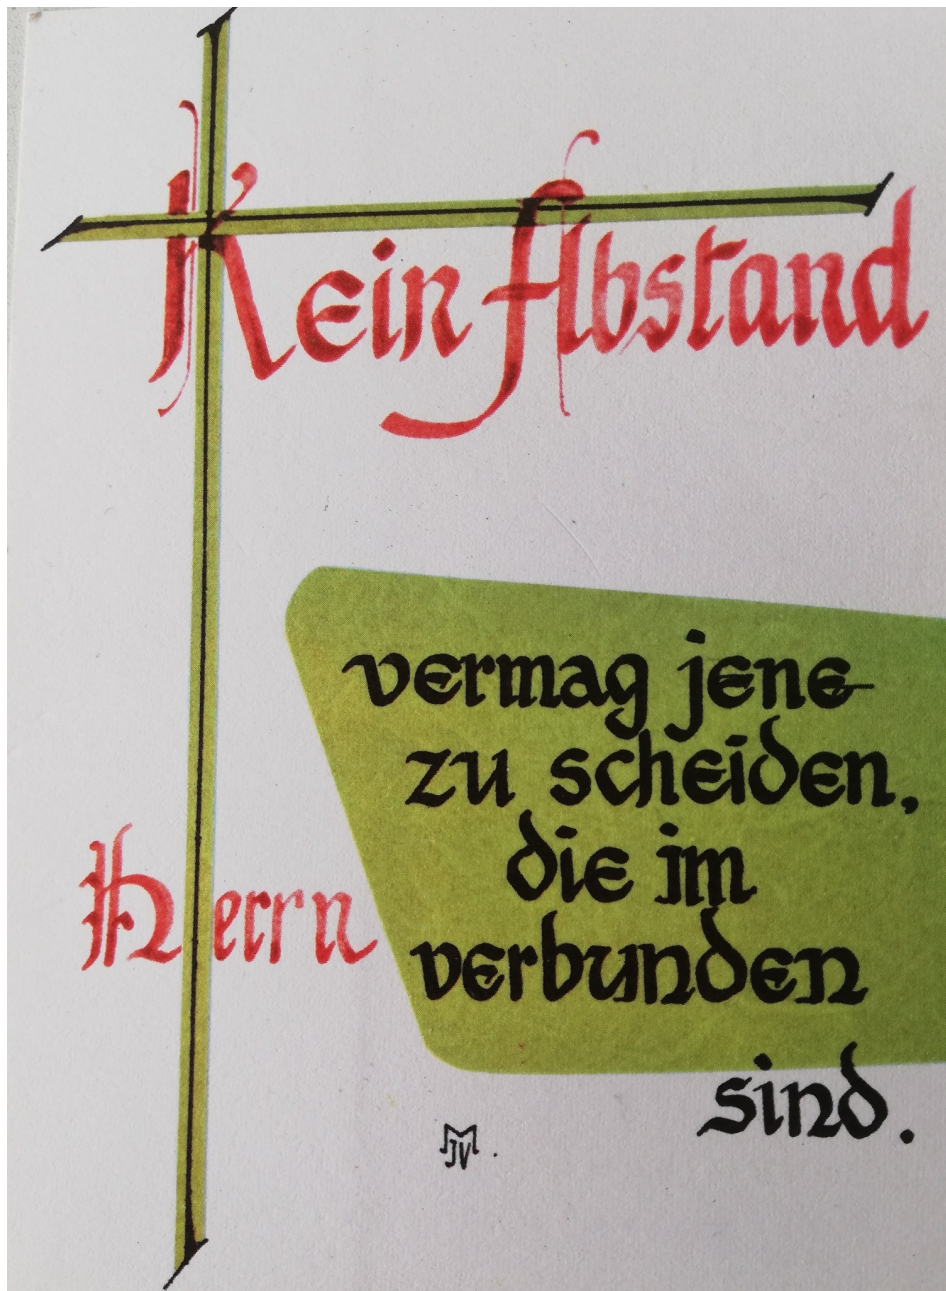 Kein Abstand
vermag jene
zu scheiden,
die im
Herrn verbunden
sind.
MJV.